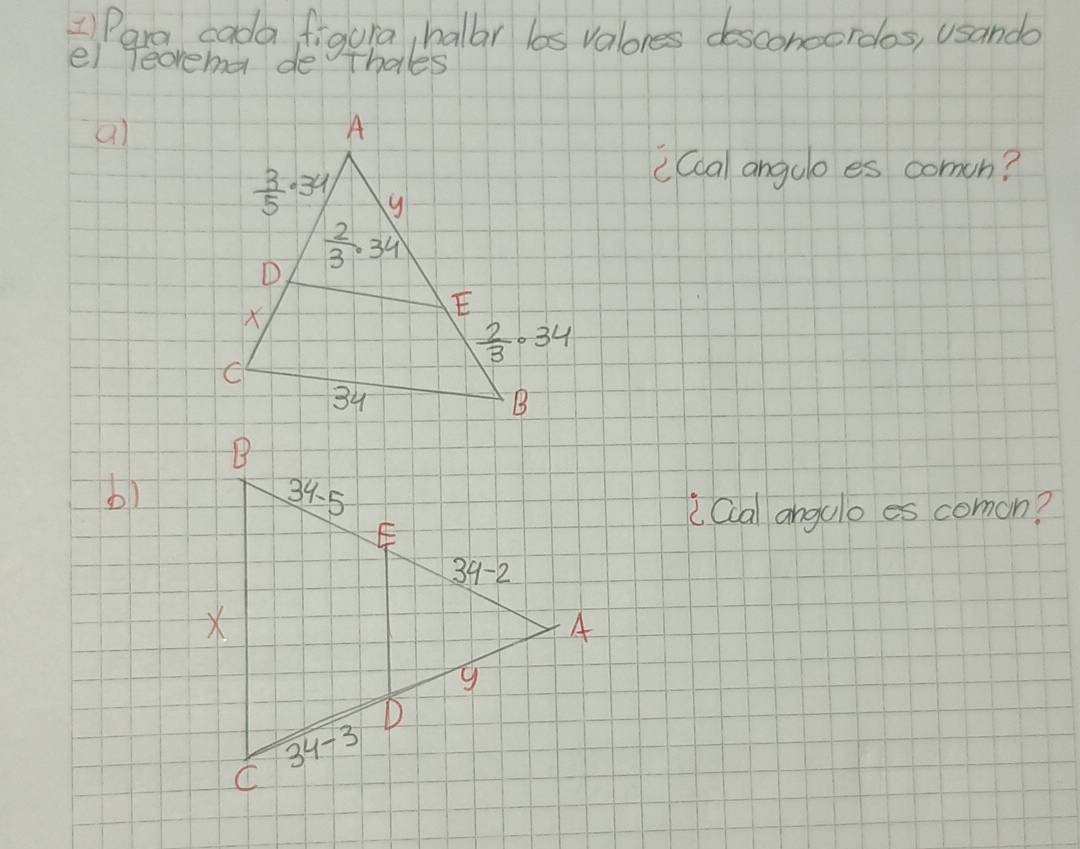 1) Para cada figura, hallar los valores desconocidos, usando
el Teorema de Thales
a)
A
¿Cual angulo es comun?
3/5 · 34
y
2/3 · 34
D
E
x
2/3 · 34
C
34
B
B
b)
34-5
¿Cual angulo es comun?
E
34-2
X
A
y
D
34-3
C